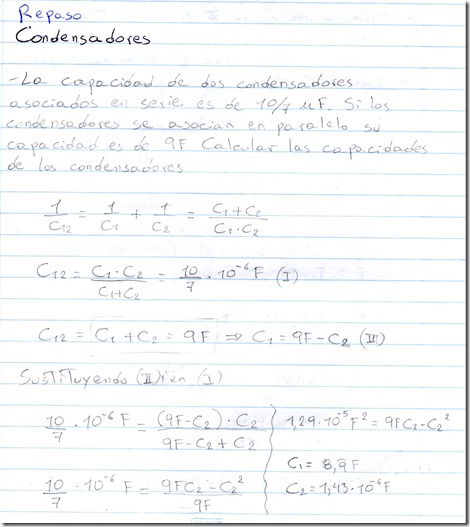 Repaso
Condensadores
-La capacidad de dos condensadores
asociados en serie es de 10/7 μF. Si los
condensadores se asocian en paralelo su
capacidad es de 9F Calcular las capacidades
de los condensadores
1/C12 = 1/C1 + 1/C2 = C1+C2/C1·C2
C12 = C1·C2/C1+C2 = 10/7 · 10^-6 F (I)
C12 = C1 + C2 = 9F ⇒ C1 = 9F - C2 (II)
Sustituyendo (II) en (I)
10/7 · 10^-6 F = (9F-C2)·C2/9F-C2+C2
10/7 · 10^-6 F = 9FC2-C2^2/9F
1,29·10^-5 F^2 = 9FC2-C2^2
C1 = 8,9F
C2 = 1,43·10^-6 F